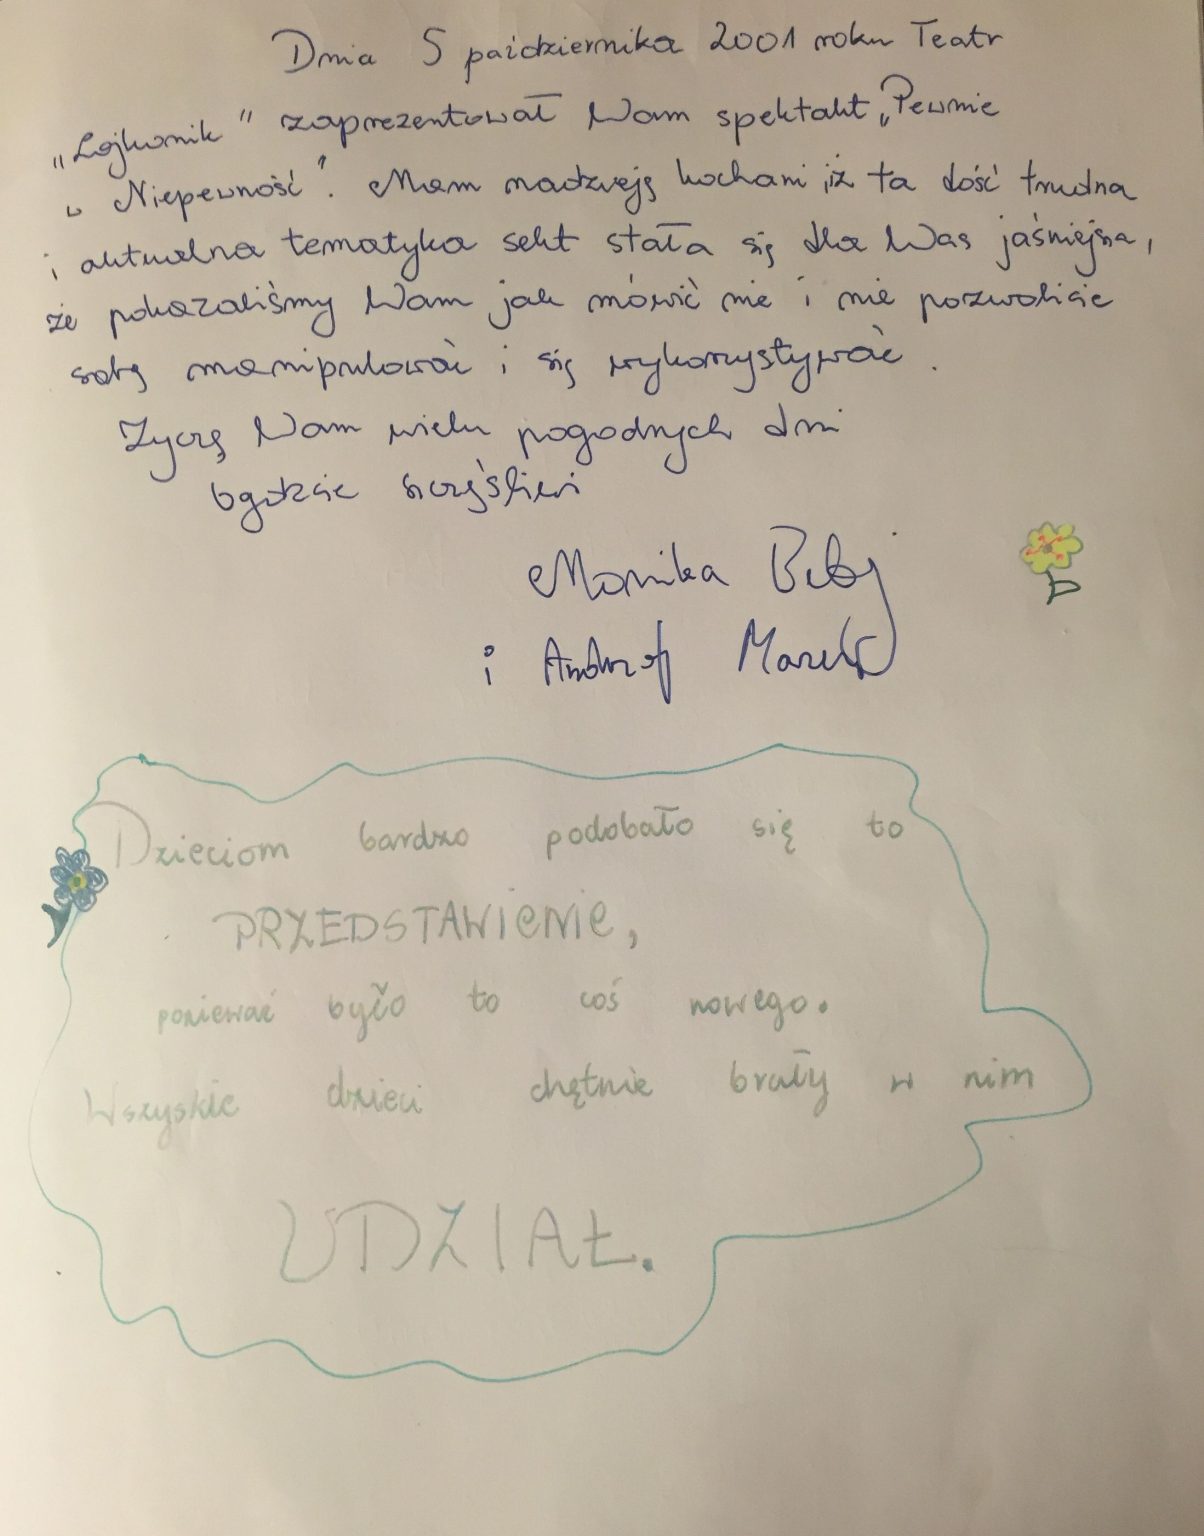 Dnia 5 października 2001 roku Teatr
„Lejkonik" zaprezentował Wam spektakl „Pewnie
w Niepewność". Mam nadzieję kochani, iż ta dość trudna
i aktualna tematyka sekt stała się dla Was jaśniejsza,
że pokazaliśmy Wam jak mówić nie i nie pozwolicie
sobą manipulować i się wykorzystywać.
Życzę Wam wielu pogodnych dni
bądźcie szczęśliwi
Monika
i Andrzej
Dzieciom bardzo podobało się to
PRZEDSTAWIENIE,
ponieważ było to coś nowego.
Wszyskie dzieci chętnie brały w nim
UDZIAŁ.